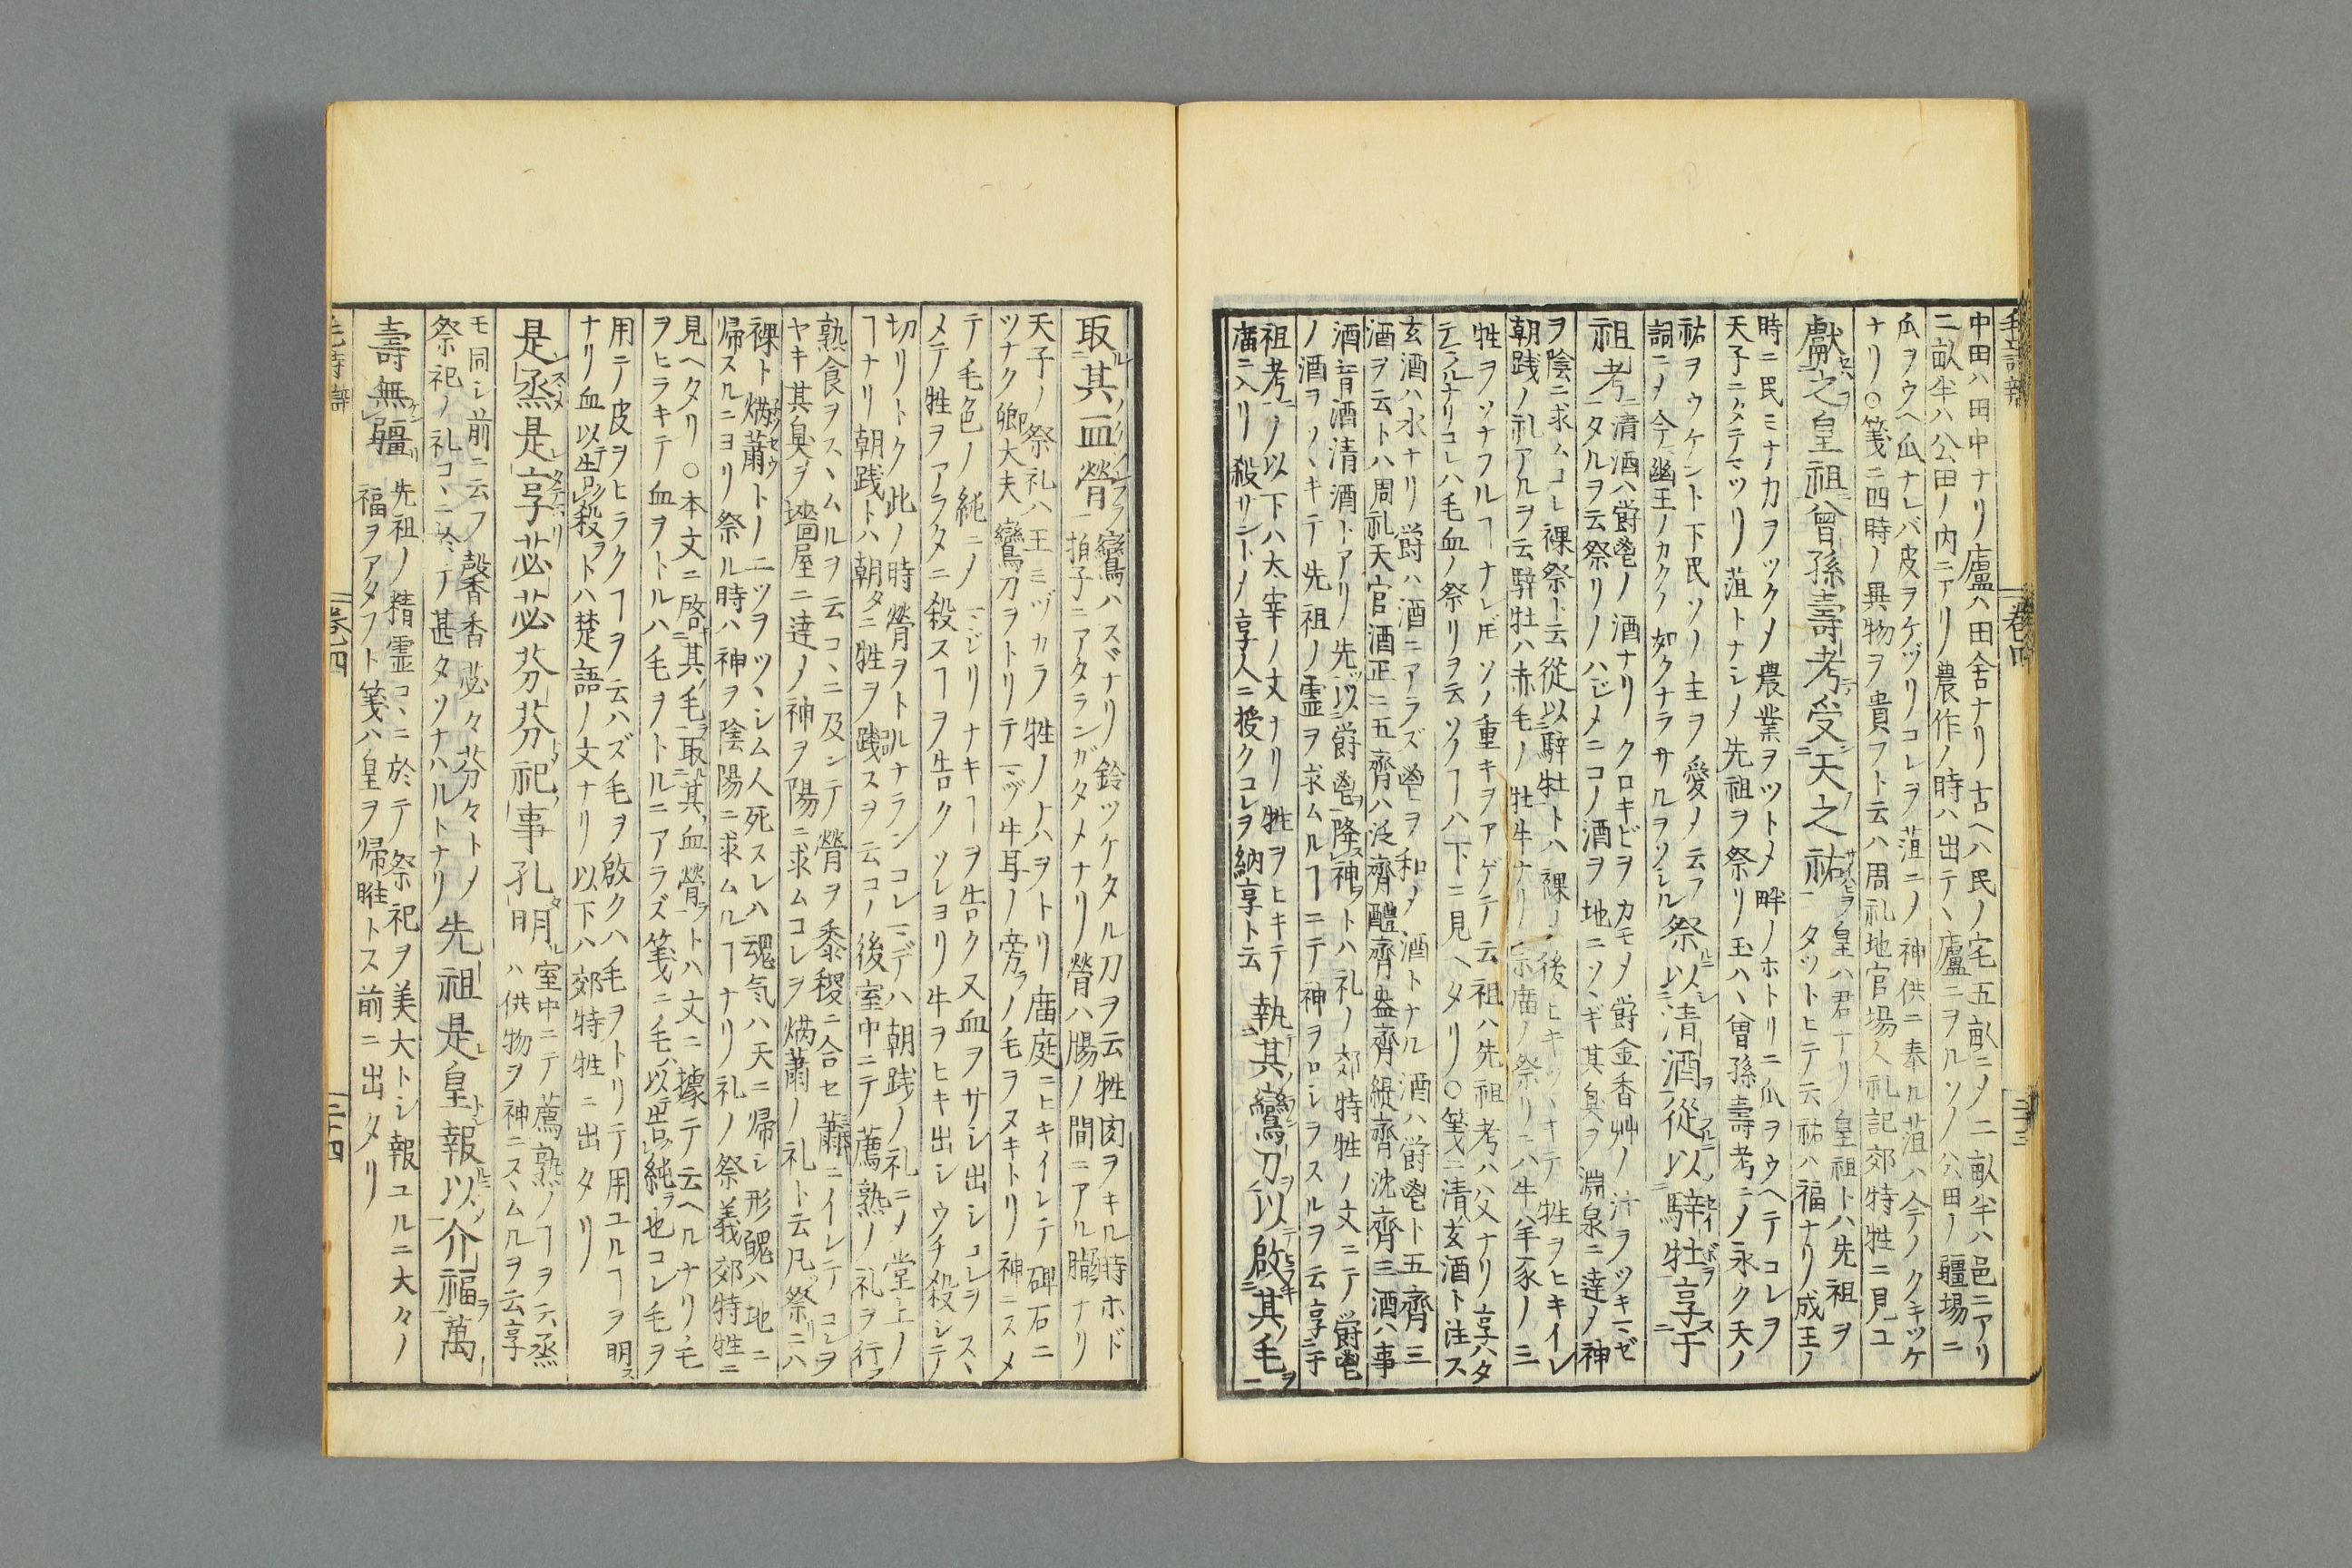 中田ハ田中ナリ廬ハ田舎ナリ古ヘハ民ノ宅五畝ニメ二畝半ハ邑ニアリ
二畝半ハ公田ノ内ニアリ農作ノ時ハ出テヽ廬ニヲルソノ公田ノ疆場ニ
瓜ヲウヘ瓜ナレバ皮ヲケヅリコレヲ菹ニメ神供ニ奉ル菹ハ今ノクキツケ
ナリ○箋ニ四時ノ異物ヲ貴フト云ハ周礼地官場人礼記郊特牲ニ見ユ
獻之皇祖曾孫壽考受天之祜
皇ハ君ナリ皇祖トハ先祖ヲ
タツトヒテ云祜ハ福ナリ成王ノ
時ニ民ミナ力ヲツクメ農業ヲツトメ畔ノホトリニ瓜ヲウヘテコレヲ
天子ニタテマツリ菹トナシメ先祖ヲ祭リ玉ハヽ曾孫壽考ニメ永ク天ノ
祜ヲウケント下民ソノ主ヲ愛メ云フ
詞ニメ今幽王ノカクノ如クナラサルヲソシル
祭以清酒從以騂牡享于
祖考
清酒ハ欝鬯ノ酒ナリクロキビヲカモメ欝金香艸ノ汁ヲツキマゼ
タルヲ云祭リノハジメニコノ酒ヲ地ニソヽギ其臭ヲ淵泉ニ達メ神
ヲ陰ニ求ムコレ裸祭ト云從以騂牡トハ裸メ後ヒキツヽキテ牲ヲヒキイレ
朝践ノ礼アルヲ云騂牡ハ赤毛ノ牡牛ナリ宗庿ノ祭リニハ牛羊豕ノ三
牲ヲソナフルヿナレ𪜈ソノ重キヲアゲテ云祖ハ先祖考ハ父ナリ享ハタ
テマツルナリコレハ毛血ノ祭リヲ云ソノヿハ下ニ見ヘタリ○箋ニ清玄酒ト注ス
玄酒ハ水ナリ欝ハ酒ニアラズ鬯ヲ和メ酒トナル酒ハ欝鬯ト五齊三
酒ヲ云トハ周礼天官酒正ニ五齊ハ泛齊醴齊盎齊緹齊沈齊三酒ハ事
酒昔酒清酒トアリ先以欝鬯降神トハ礼ノ郊特牲ノ文ニテ欝鬯
ノ酒ヲソヽキテ先祖ノ霊ヲ求ムルヿニテ神ヲロシヲスルヲ云享于
祖考ノ以下ハ大宰ノ文ナリ牲ヲヒキテ
庿ニ入リ殺サントメ享人ニ授クコレヲ納享ト云
執其鸞刀以啟其毛
取其血膋
鸞ハスヾナリ鈴ツケタル刀ヲ云牲肉ヲキル時ホド
拍子ニアタランガタメナリ膋ハ膓ノ間ニアル臘ナリ
天子ノ祭礼ハ王ミヅカラ牲ノナハヲトリ庿庭ニヒキイレテ碑石ニ
ツナク卿大夫鸞刀ヲトリテマヅ牛耳ノ旁ラノ毛ヲヌキトリ神ニスヽメ
テ毛色ノ純ニメマジリナキヿヲ告ク又血ヲサシ出シコレヲスヽ
メテ牲ヲアラタニ殺スヿヲ告クソレヨリ牛ヲヒキ出シウチ殺シテ
切リトク此ノ時膋ヲトルナランコレマデハ朝践ノ礼ニメ堂上ノ
ヿナリ朝践トハ朝タニ牲ヲ践スヲ云コノ後室中ニテ薦熟ノ礼ヲ行フ
熟食ヲスヽムルヲ云コヽニ及ンテ膋ヲ黍稷ニ合セ蕭ニイレテコレヲ
ヤキ其臭ヲ墻屋ニ達メ神ヲ陽ニ求ムコレヲ焫蕭ノ礼ト云凡祭リニハ
裸ト焫蕭トノ二ツヲツヽシム人死スレハ魂気ハ天ニ帰シ形魄ハ地ニ
帰スルニヨリ祭ル時ハ神ヲ陰陽ニ求ムルヿナリ礼ノ祭義郊特牲ニ
見ヘタリ○本文ニ啓其毛取其血膋トハ文ニ據テ云ヘルナリ毛
ヲヒラキテ血ヲトルハ毛ヲトルニアラズ箋ニ毛以告純也コレ毛ヲ
用ニテ皮ヲヒラクヿヲ云ハズ毛ヲ啟クハ毛ヲトリテ用ユルヿヲ明ス
ナリ血以告殺トハ楚語ノ文ナリ以下ハ郊特牲ニ出タリ
是烝是享苾苾芬芬祀事孔明
室中ニテ薦熟ノヿヲ云烝
ハ供物ヲ神ニスヽムルヲ云享
モ同シ前ニ云フ馨香苾々芬々トメ
祭祀ノ礼コヽニ於テ甚タソナハルトナリ
先祖是皇報以介福萬
壽無疆
先祖ノ精霊コヽニ於テ祭祀ヲ美大トシ報ユルニ大々ノ
福ヲアタフト箋ハ皇ヲ帰暀トス前ニ出タリ
卷四
二十四